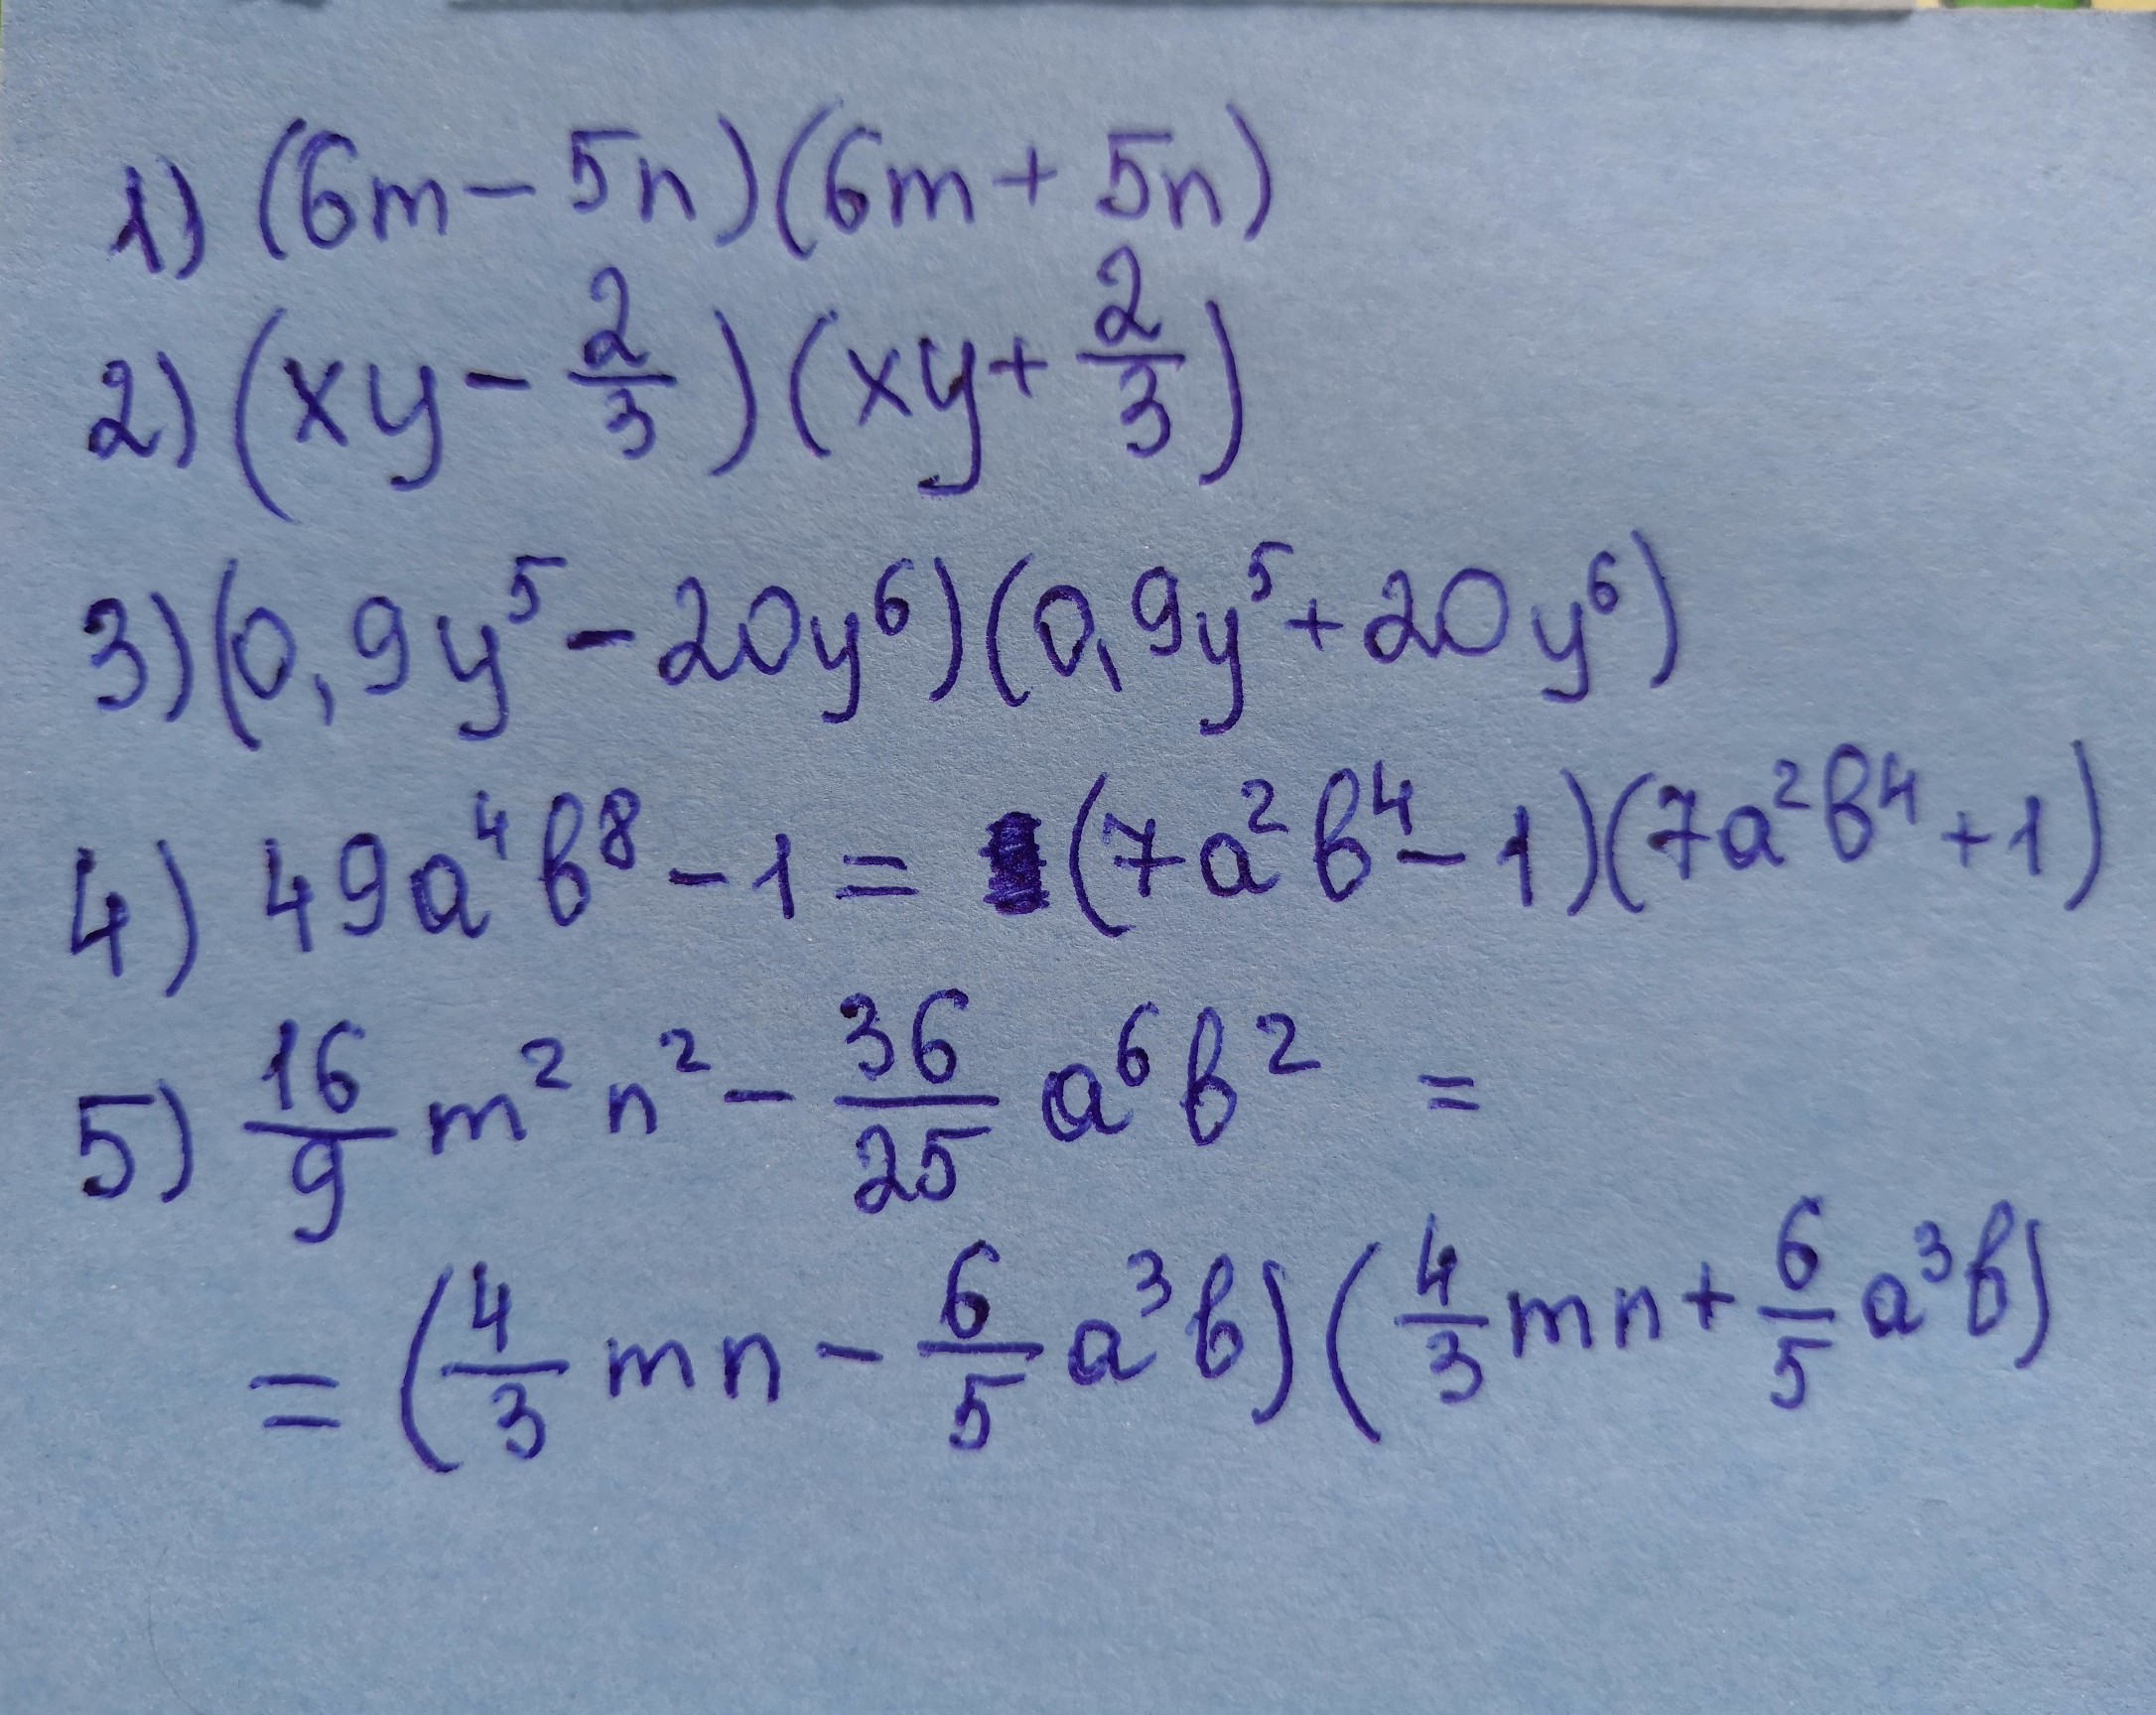 1) (6m − 5n)(6m + 5n)
2) (xy − 2/3)(xy + 2/3)
3) (0,9y⁵ − 20y⁶)(0,9y⁵ + 20y⁶)
4) 49a⁴b⁸ − 1 = (7a²b⁴ − 1)(7a²b⁴ + 1)
5) 16/9 m²n² − 36/25 a⁶b² =
= (4/3 mn − 6/5 a³b)(4/3 mn + 6/5 a³b)